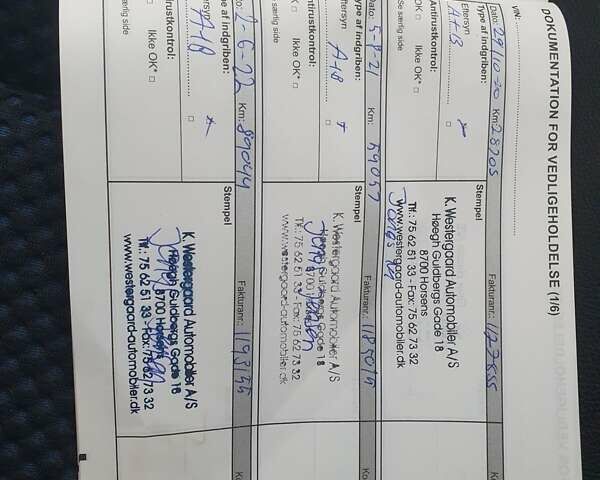 DOKUMENTATION FOR VEDLIGEHOLDELSE (1/6)
VIN:
Dato: 29/10-20 Km: 28205 Fakturanr.:
Type af indgriben: Stempel
Eftersyn
A+B
Antirustkontrol:
OK Ikke OK*
*Se særlig side
K. Westergaard Automobiler A/S
Høegh Guldbergs Gade 18
8700 Horsens
Tlf.: 75 62 51 33 - Fax: 75 62 73 32
www.westergaard-automobiler.dk
Dato: 5-8-21 Km: 59057 Fakturanr.:
Type af indgriben: Stempel
Eftersyn
A+B
Antirustkontrol:
OK Ikke OK*
særlig side
K. Westergaard Automobiler A/S
Høegh Guldbergs Gade 18
8700 Horsens
Tlf.: 75 62 51 33 - Fax: 75 62 73 32
www.westergaard-automobiler.dk
2-6-22 Km: 89044 Fakturanr.:
indgriben: Stempel
A+B
Antirustkontrol:
Ikke OK*
særlig side
K. Westergaard Automobiler A/S
Høegh Guldbergs Gade 18
8700 Horsens
Tlf.: 75 62 51 33 - Fax: 75 62 73 32
www.westergaard-automobiler.dk